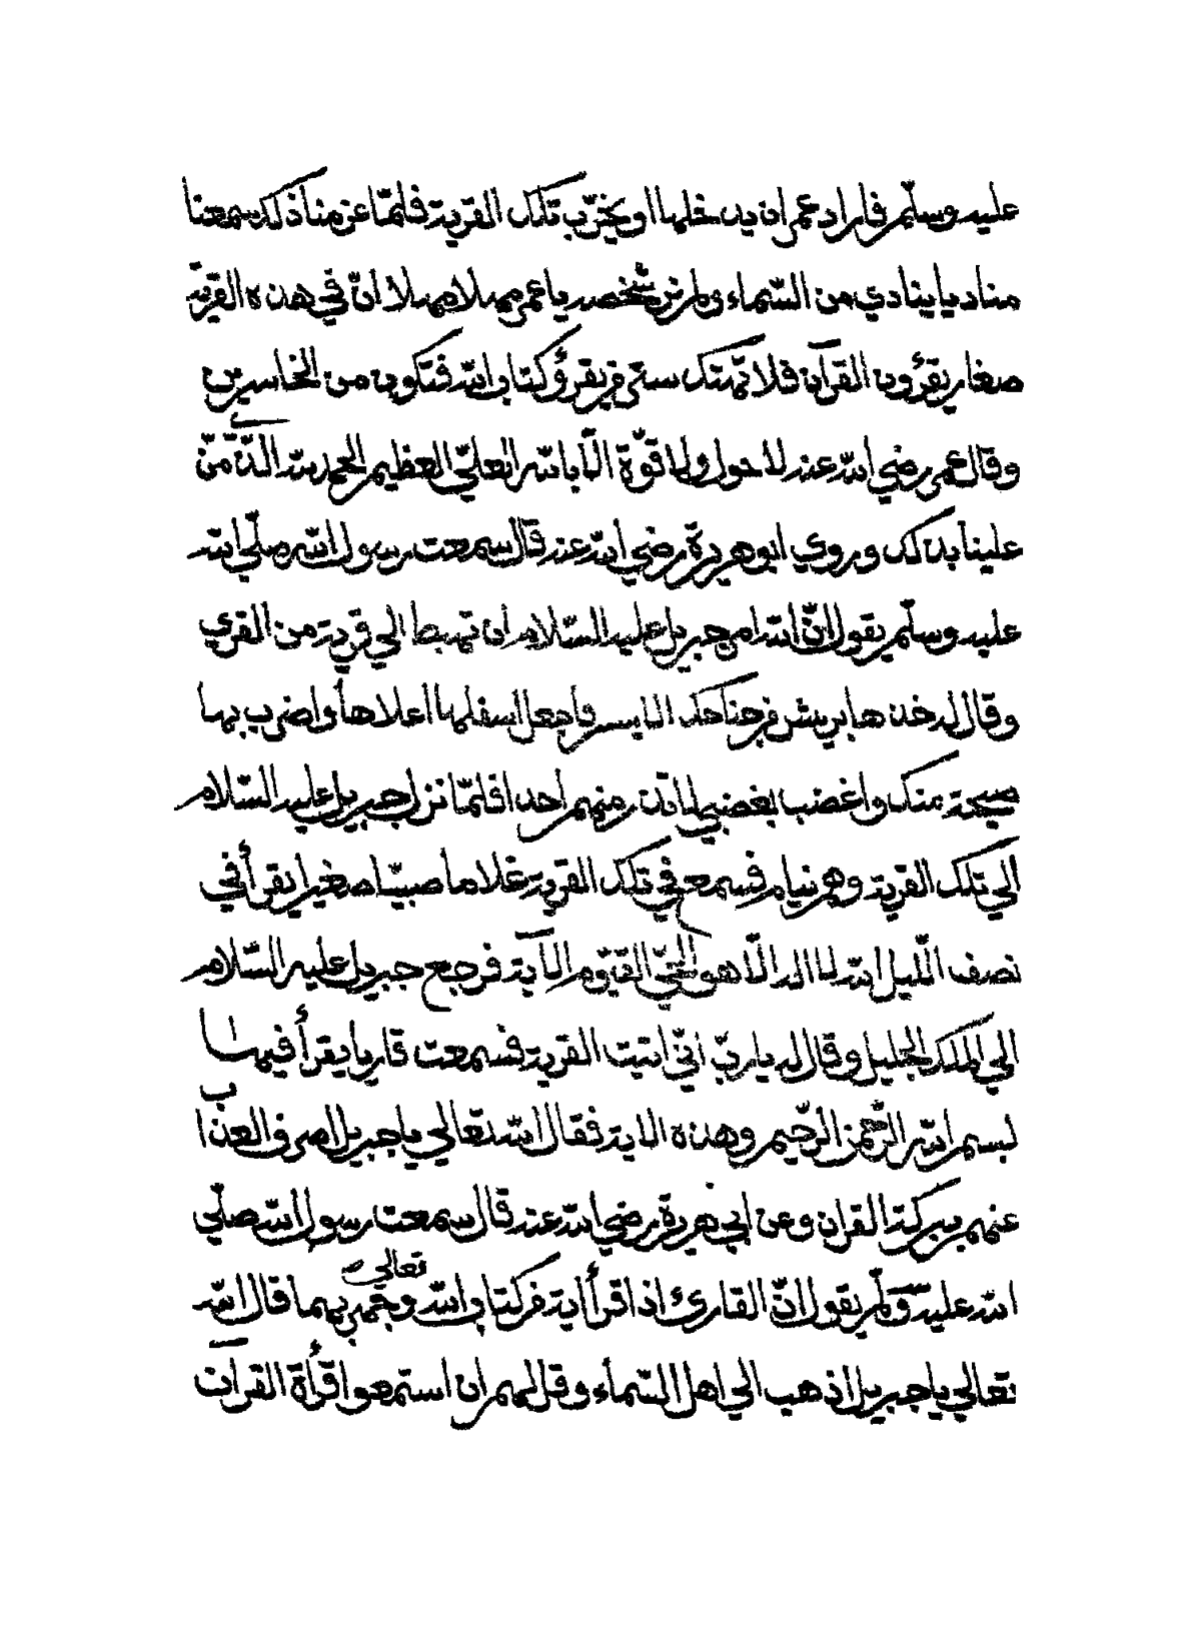 عليه وسلّم فاراد عمر ان يدخلها او يخرّب تلك القرية فلمّا عزمنا ذلك سمعنا
مناديا ينادي من السّماء ولم نر شخصه يا عمر مهلا مهلا لانّ في هذه القريّة
صغار يقرؤون القرآن فلا تهتك ستر من يقرؤ كتاب الله فتكون من الخاسرين
وقال عمر رضي الله عنه لا حول ولا قوّة الّا بالله العليّ العظيم الحمد لله الّذي منّ
علينا بذلك وروي ابو هريرة رضي الله عنه قال سمعت رسول الله صلّي الله
عليه وسلّم يقول انّ الله امر جبريل عليه السّلام ان تهبط الي قرية من القري
وقال له خذها بريش من جناحك الايسر فاجعل اسفلها اعلاها واضرب بها
صيحة منك واغضب بغضبي لا تذر منهم احدا فلمّا نزل جبريل عليه السّلام
الي تلك القرية وهم نيام فسمع في تلك القرية غلاما صبيّا صغيرا يقرأ في
نصف اللّيل الله لا اله الّا هو الحيّ القيّوم الآية فرجع جبريل عليه السّلام
الي الملك الجليل وقال له يا ربّ انّي اتيت القرية فسمعت قاريا يقرأ فيها
بسم الله الرّحمن الرّحيم وهذه الاية فقال الله تعالي يا جبريل اصرف العذاب
عنهم ببركة القران وعن ابي هريرة رضي الله عنه قال سمعت رسول الله صلّي
الله عليه وسلّم يقول انّ القارئ اذا قرأ اية من كتاب الله تعالي وجهر بها قال الله
تعالي يا جبريل اذهب الي اهل السّماء وقل لهم ان استمعوا قرأة القرآن